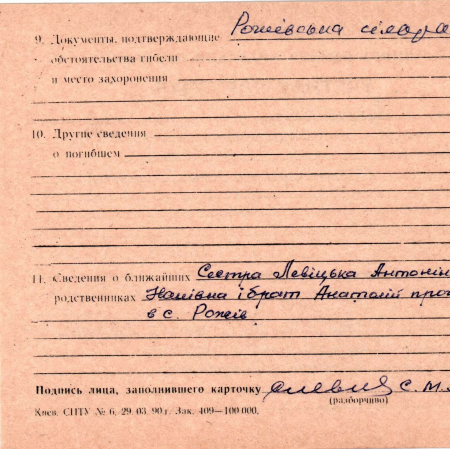 9. Документы, подтверждающие Рожівська сільра
обстоятельства гибели
и место захоронения
10. Другие сведения
о погибшем
11. Сведения о ближайших Сестра Левіцька Антонін
родственниках Іванівна і брат Анатолій прож
в с. Рожів
Подпись лица, заполнившего карточку С. М.
(разборчиво)
Киев. СПТУ № 6, 29. 03. 90 г. Зак. 409—100 000.